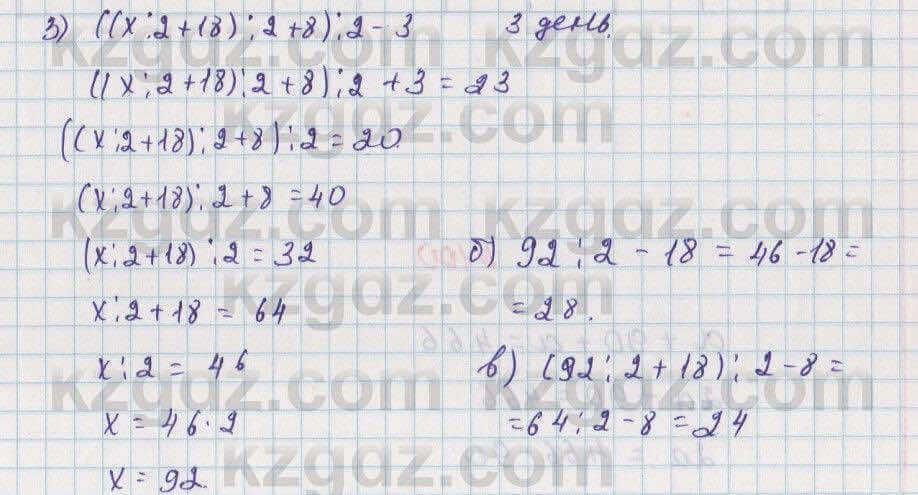 3) ((x:2+18):2+8):2-3 3 день.
((x:2+18):2+8):2+3=23
((x:2+18):2+8):2=20
(x:2+18):2+8=40
(x:2+18):2=32
x:2+18=64
x:2=46
x=46·2
x=92.
б) 92:2-18=46-18=
=28.
в) (92:2+18):2-8=
=64:2-8=24
kzgdz.com